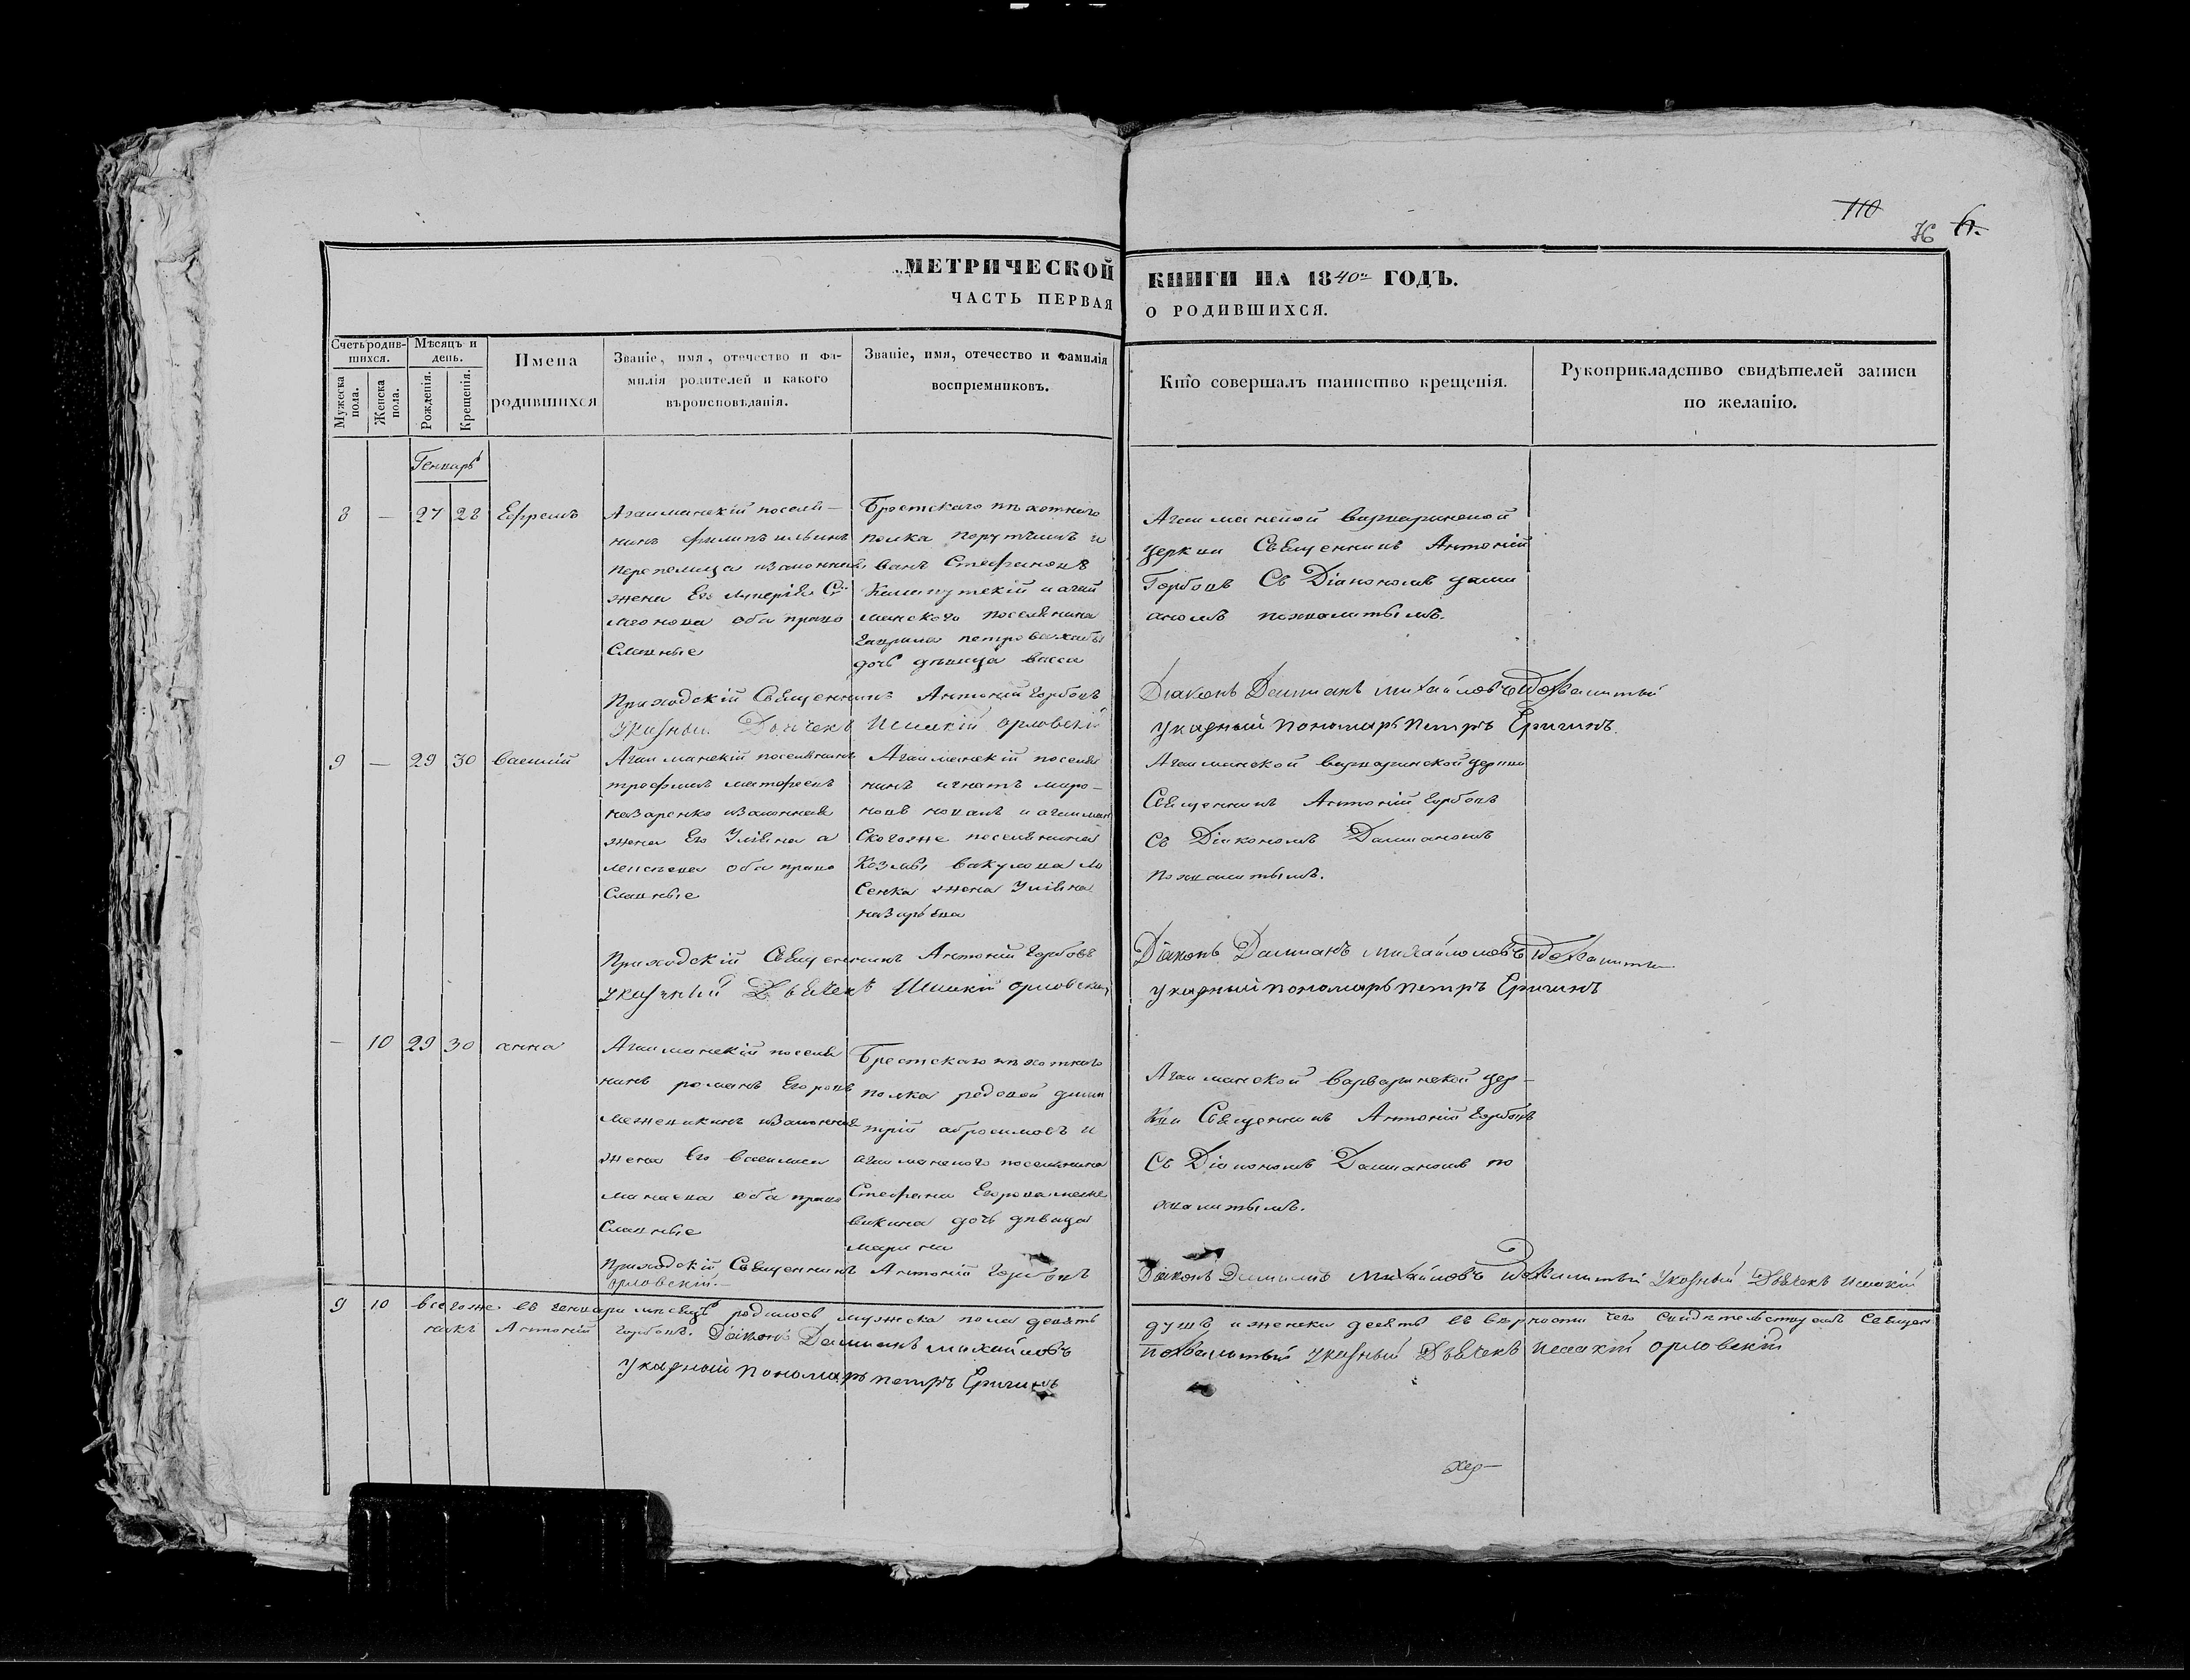 110
76 6.
МЕТРИЧЕСКОЙ КНИГИ НА 1840й ГОДЪ.
ЧАСТЬ ПЕРВАЯ О РОДИВШИХСЯ.
Счетъ родившихся.
Мужеска пола.
Женска пола.
Мѣсяцъ и день.
Рожденія.
Крещенія.
Имена
родившихся
Званіе, имя, отечество и фа-
милія родителей и какого
вѣроисповѣданія.
Званіе, имя, отечество и фамилія
воспріемниковъ.
Кто совершалъ таинство крещенія.
Рукоприкладство свидѣтелей записи
по желанію.
Генварь
8 — 27 28 Ефремъ
Агайманскій посели-
нинъ филипъ ильинъ
перепелица изаконная
жена Его Си
мгонова оба право
Славные
Брестскаго пѣхотнаго
полка порутчикъ и
ванъ Стефановъ
и агай
манского поселянина
гаврила петрова
дочь дѣвица васси
Агайманской варваринской
церкви Священникъ Антоній
Горбовъ Съ Діакономъ дами
аномъ похвалитымъ.
Приходскій Священникъ Антоній Горбовъ
Указный Дьячекъ Исакій орловскій
Діаконъ Даміанъ Михайловъ Похвалитый
указный пономарь петръ Еригинъ.
9 — 29 30 василій
Агайманскій поселянинъ
трофимъ матфеевъ
назаренко изаконная
жена Его Уліяна а
лексѣева оба право
Славные
Агайманскій поселя
нинъ игнатъ миро-
новъ и агайман
Скогоже поселянина
Козьмы вакулова ло
Сенка жена Уліяна
назарьева
Агайманской варваринской церкви
Священникъ Антоній Горбовъ
Съ Діакономъ Даміаномъ
похвалитымъ.
Приходскій Священникъ Антоній Горбовъ
указный Дьячекъ Исакій орловскій
Діаконъ Даміанъ Михайловъ Похвалитый
указный пономарь петръ Еригинъ
— 10 29 30 анна
Агайманскій поселя
нинъ романъ Егоровъ
межевикинъ изаконная
жена Его василиса
манаева оба право
Славные
Брестскаго пѣхотнаго
полка редовой дими
трій абросимовъ и
агайманского поселянина
Стефана Егорова меже
викина дочь дѣвица
марина
Агайманской варваринской цер-
кви Священникъ Антоній Горбовъ
Съ Діакономъ Даміаномъ по
хвалитымъ.
Приходскій Священникъ Антоній Горбовъ
Діаконъ Даміанъ Михайловъ Похвалитый Указный Дьячекъ Исакій
орловскій.—
9 10 всегоже въ генваре мѣсяцѣ родилось мужска пола девять душъ и женска десять въ вѣрности чего Свидѣтельствуемъ Священ
никъ Антоній Горбовъ. Діаконъ Даміанъ михайловъ похвалитый указный Дьячекъ Исакій орловскій
указный пономарь петръ Еригинъ
хер—